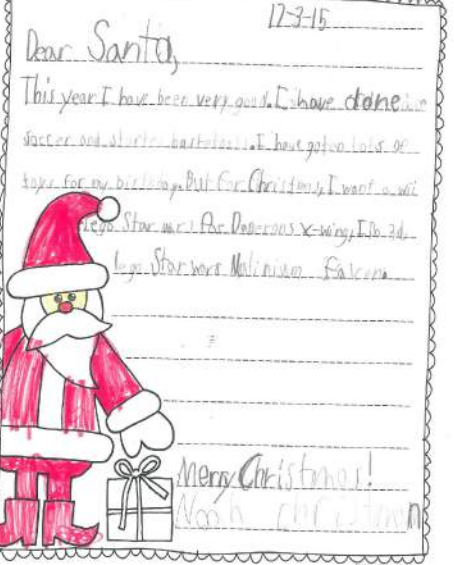 12-3-15
Dear Santa,
This year I have been very good. I have done
soccer and started basketball. I have goten lots of
toys for my birthday. But for Christmas, I want a wii
lego Star wars Poe Damerons x-wing,
lego Star wars Malinium Falcon.
Merry Christmas!
Noah Christman